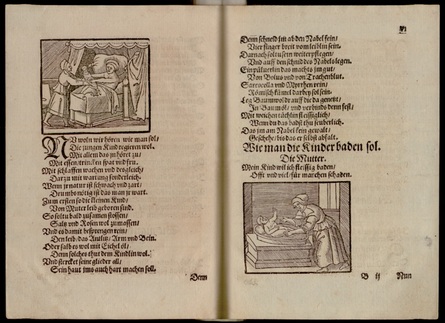 NU woln wir hören wie man sol/
Die jungen Kind regieren wol.
Mit allem das zu hört zu/
Mit essen/trincken spat und fru.
Mit schlaffen wachen und desgleich/
Darzu mit wartung sonderleich.
Wenn jr natur ist schwach und zart/
Drumb so nötig ist das man jr wart.
Zum ersten so die kleinen Kind/
Von Muter leib geboren sind.
So soltu bald zusamen stossen/
Saltz und Rosen wol zumassen/
Und es damit besprengen rein/
Den leib/das Antlitz/Arm und Bein.
Oder salb es wol mit Eichel öl/
Denn solches thut dem Kindlin wol.
Und stercket seine glieder all/
Sein haut jms auch hart machen soll.
Denn
Denn schneid jm ab den Nabel sein/
Vier finger breit vom leiblin sein.
Darnach soltu sein weiter pflegen/
Und auff den schnid des Nabels legen.
Ein pülverlin das machs jm gut/
Von Bolus und von Trachenblut.
Sarcocolla und Myrrhen rein/
Römisch kümel darbey sol sein.
Leg Baumwoll auff die da genent/
In Baumöl/und verbinds denn fest/
Mit weichen tüchlin fleissigleich/
Wenn du das habst thu seuberlich.
Das jm am Nabel kein gewalt/
Geschehe/bis das er selbst abfalt.
Wie man die Kinder baden sol.
Die Mutter.
Mein Kind wil ich fleissig baden/
Offt und viel für manchen schaden.
B ij
Nun